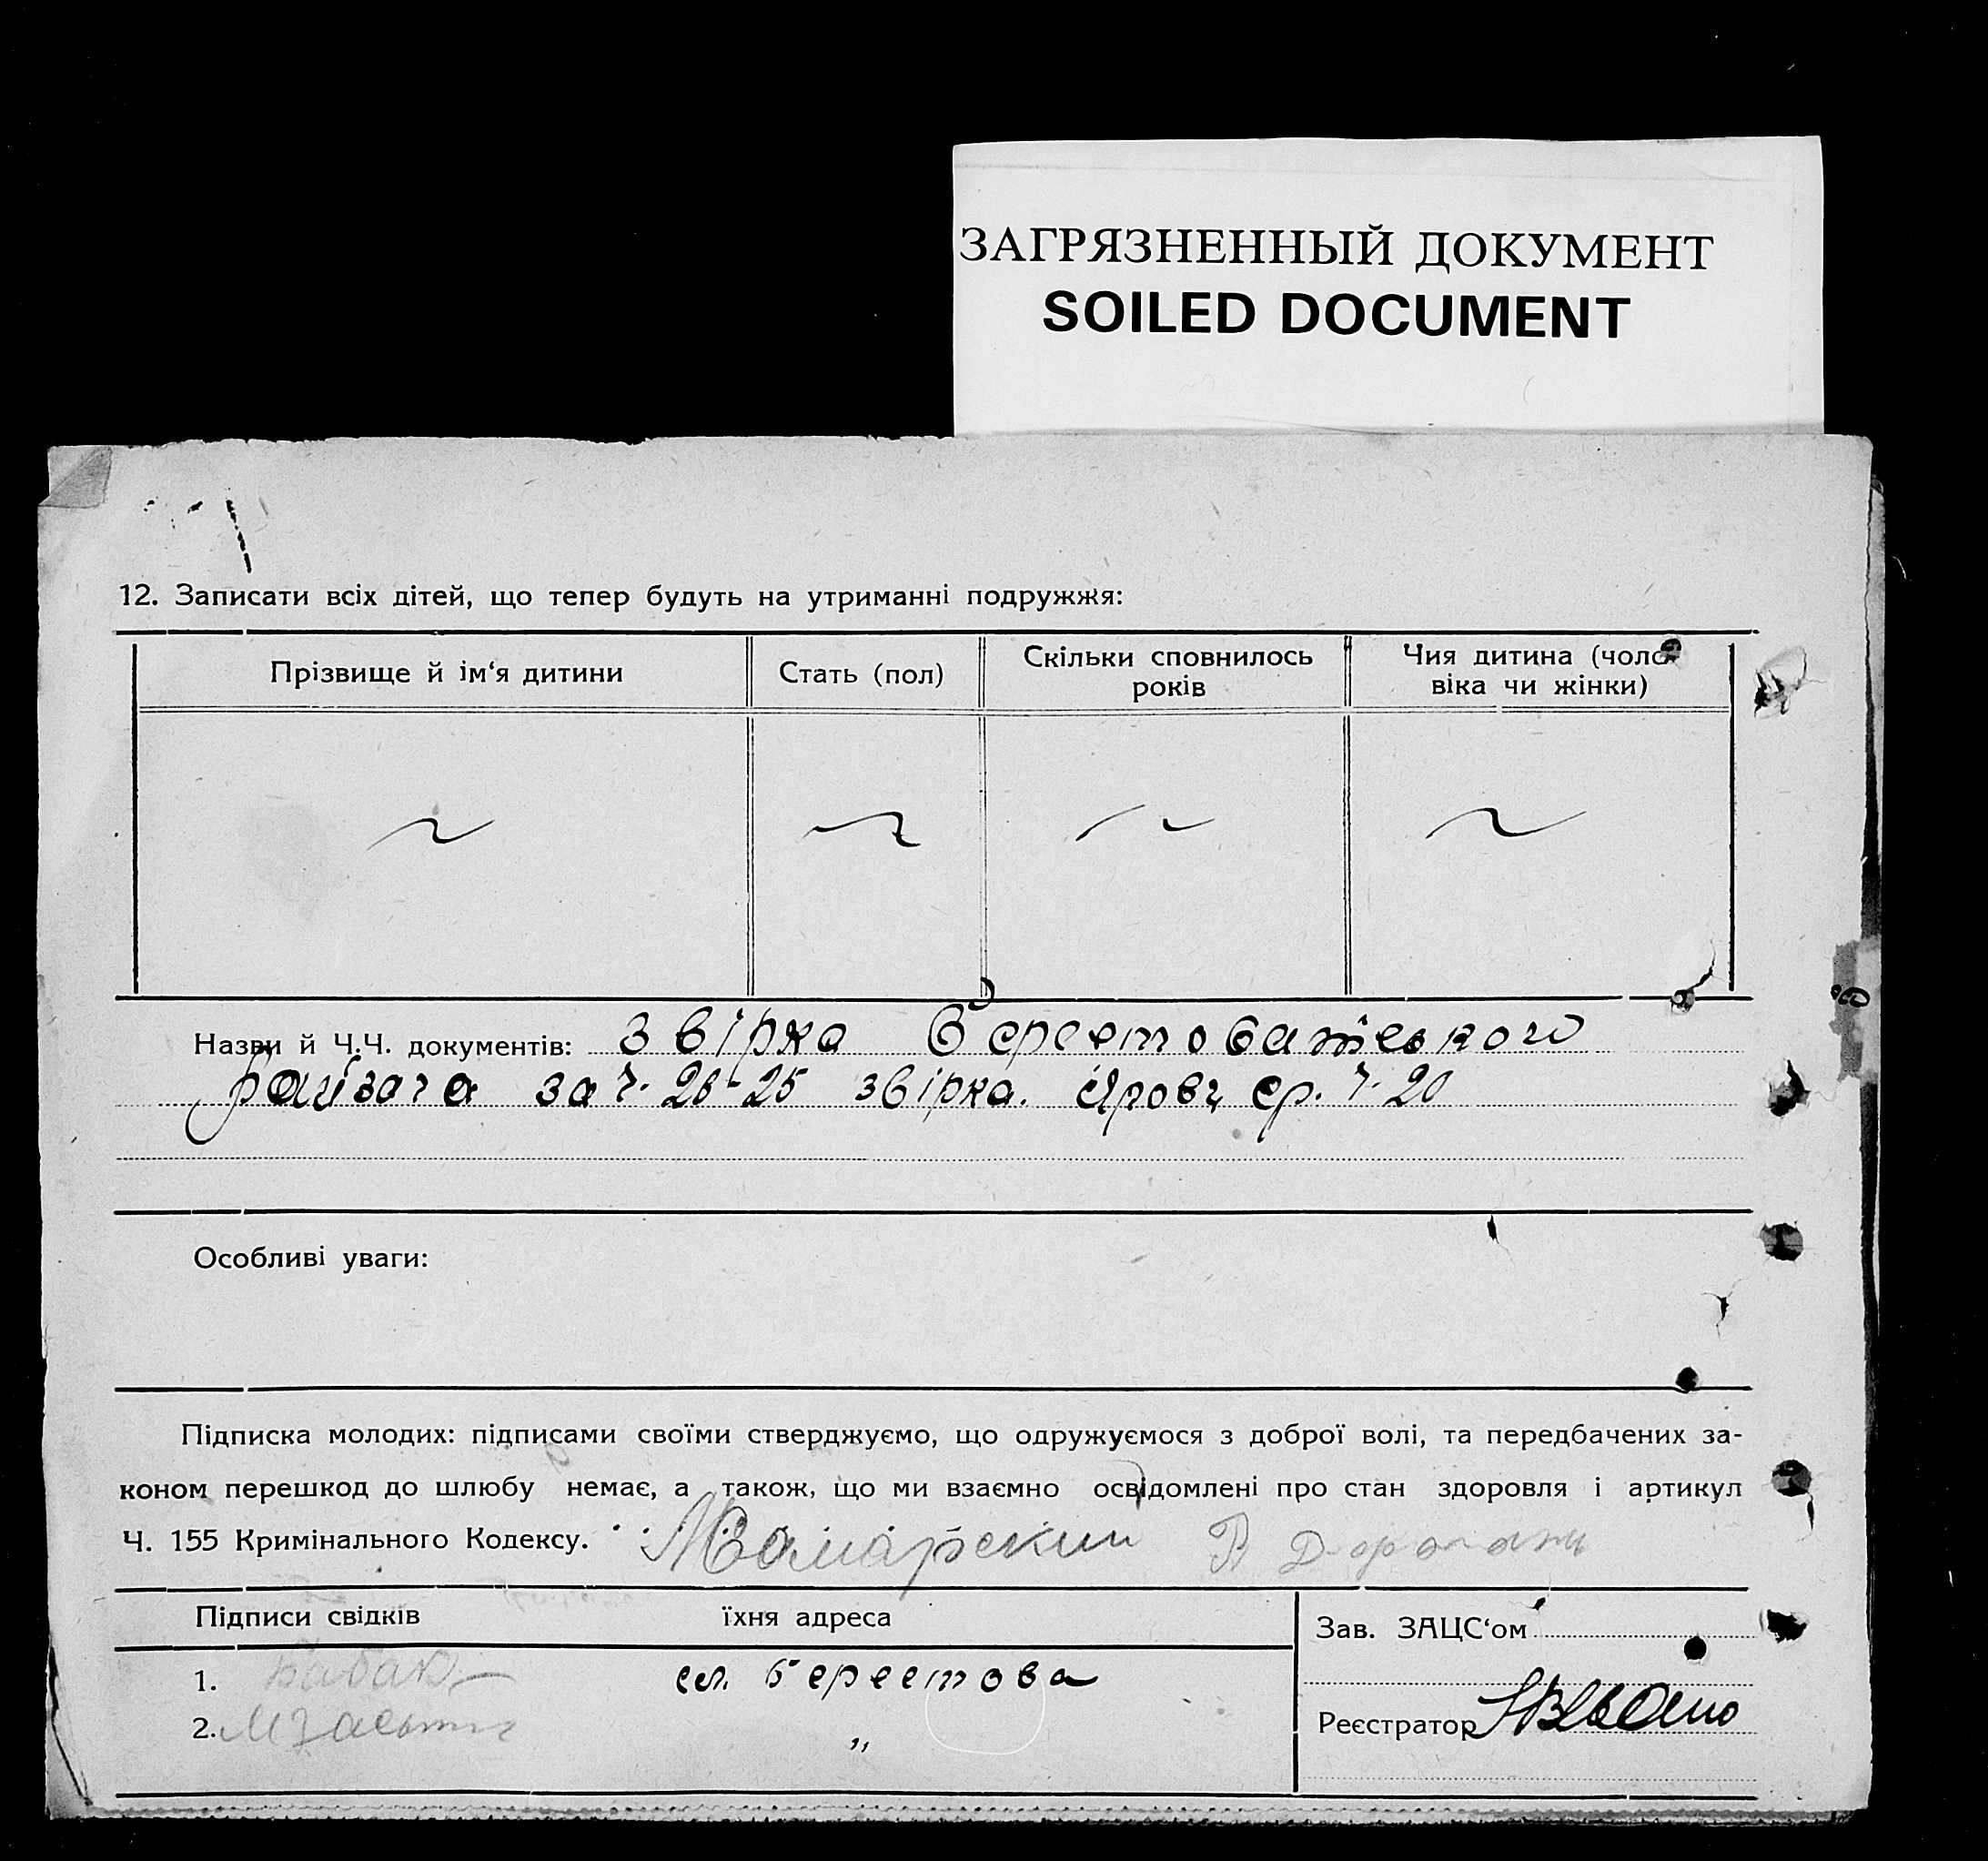 ЗАГРЯЗНЕННЫЙ ДОКУМЕНТ
SOILED DOCUMENT
12. Записати всіх дітей, що тепер будуть на утриманні подружжя:
Прізвище й ім‘я дитини
Стать (пол)
Скільки сповнилось
років
Чия дитина (чоло-
віка чи жінки)
Назви й Ч.Ч. документів: звірка Берестоватського
за ч. 26-25 звірка. ср. ч. 20
Особливі уваги:
Підписка молодих: підписами своїми стверджуємо, що одружуємося з доброї волі, та передбачених за-
коном перешкод до шлюбу немає, а також, що ми взаємно освідомлені про стан здоровля і артикул
Ч. 155 Кримінального Кодексу.
Підписи свідків їхня адреса
Зав. ЗАЦС‘ом
1. Бабак сл. Берестова
2. „
Реєстратор